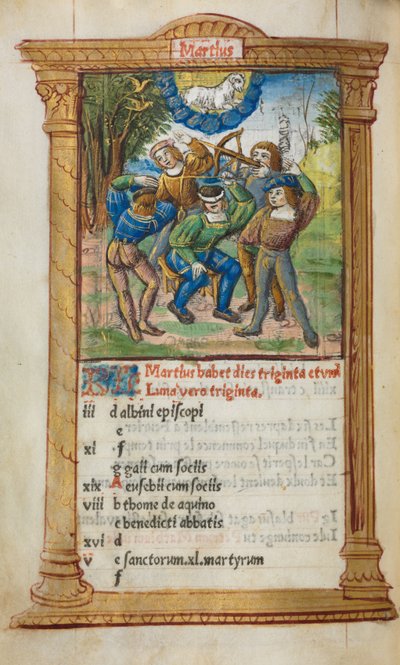 Martius
KL Martius habet dies triginta et vnũ
Luna vero triginta.
iii d albini episcopi
e
xi f
g gaii cum sociis
xix A eusebii cum sociis
viii b thome de aquino
c benedicti abbatis
xvi d
v e sanctorum .xl. martyrum
f